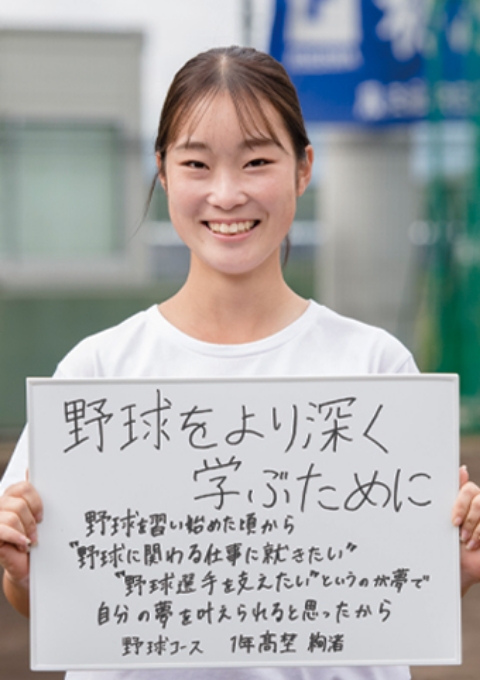 野球をより深く
学ぶために
野球を習い始めた頃から
"野球に関わる仕事に就きたい"
"野球選手を支えたい"というのが夢で
自分の夢を叶えられると思ったから
野球コース 1年髙埜 絢渚